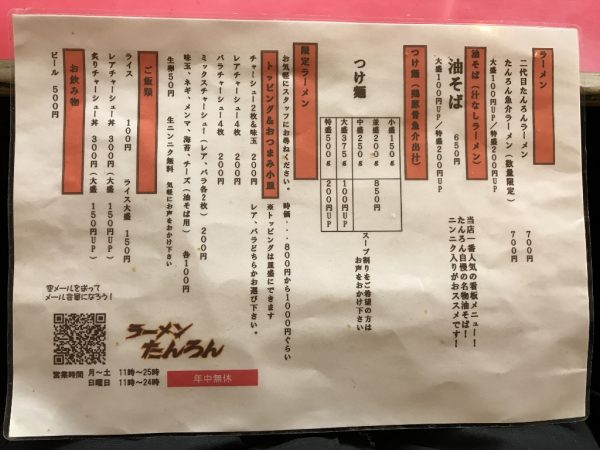 ラーメン
二代目たんろんラーメン 700円
たんろん魚介ラーメン(数量限定) 700円
大盛100円UP/特盛200円UP
油そば(汁なしラーメン)
油そば 650円
大盛100円UP/特盛200円UP
当店一番人気の看板メニュー!
たんろん自慢の名物油そば!
ニンニク入りがおススメです!
つけ麺(鶏豚骨魚介出汁)
つけ麺
小盛150g
並盛200g 850円
中盛250g
大盛375g 100円UP
特盛500g 200円UP
スープ割りをご希望の方は
お声をおかけ下さい
限定ラーメン
お気軽にスタッフにお尋ねください。 時価…800円から1000円ぐらい
トッピング&おつまみ小皿
※トッピングは並盛にできます
チャーシュー2枚&味玉 200円 レア、バラどちらかお選び下さい。
レアチャーシュー4枚 200円
バラチャーシュー4枚 200円
ミックスチャーシュー(レア、バラ各2枚) 200円
味玉、ネギ、メンマ、海苔、チーズ(油そば用) 各100円
生卵50円 生ニンニク無料 気軽にお声をおかけ下さい
ご飯類
ライス 100円 ライス大盛 150円
レアチャーシュー丼 300円(大盛 150円UP)
炙りチャーシュー丼 300円(大盛 150円UP)
お飲み物
ビール 500円
メール会員になろう!
ラーメン
たんろん
営業時間 月〜土 11時〜25時
日曜日 11時〜24時
年中無休